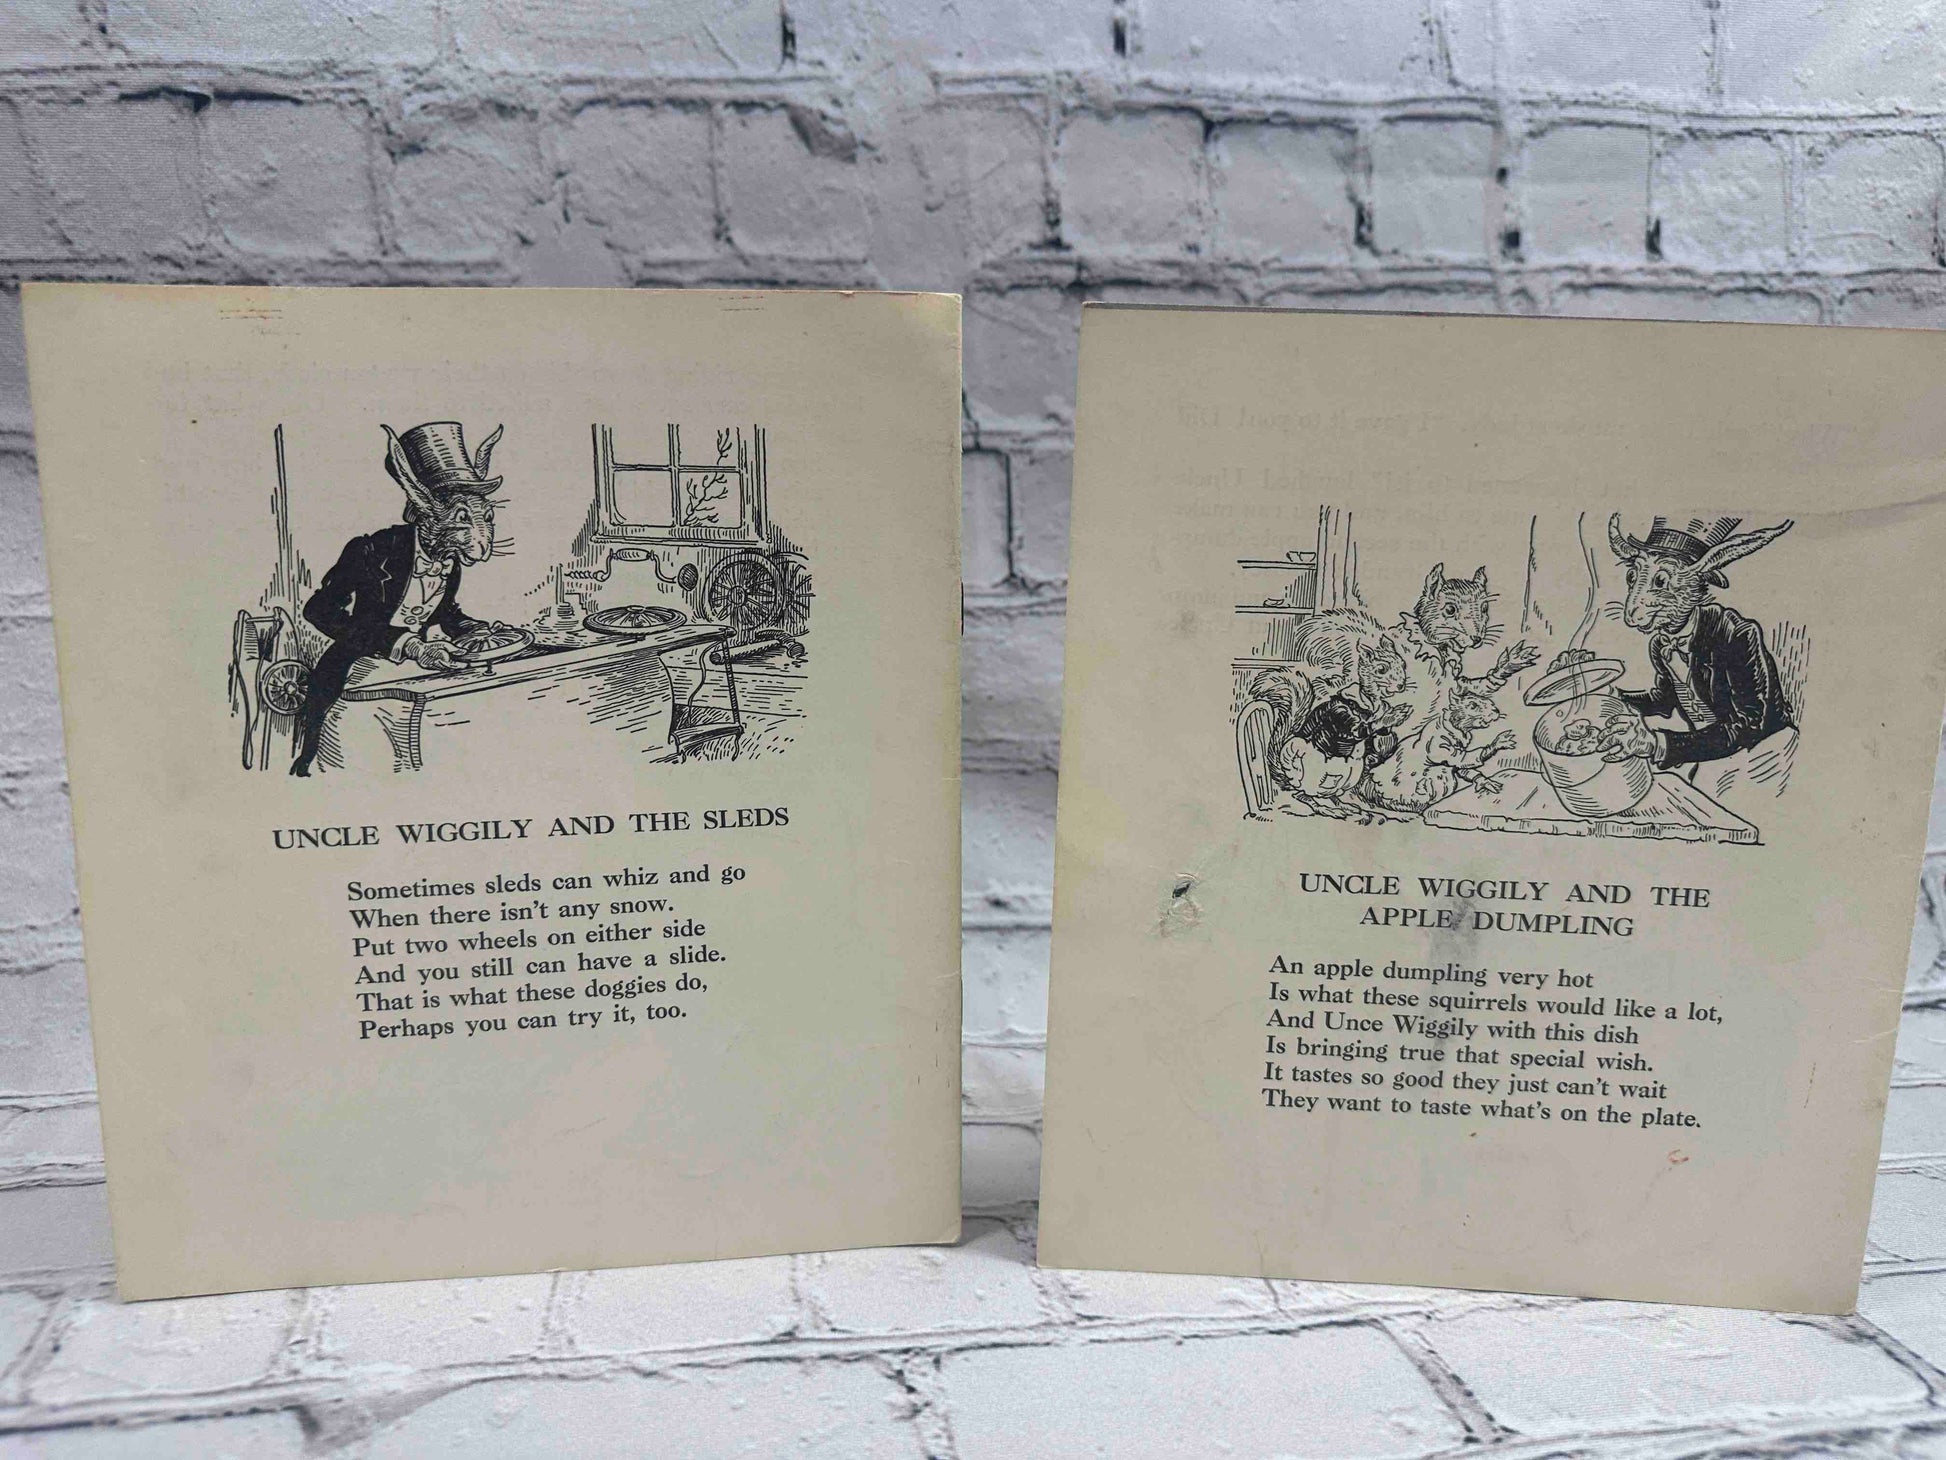 UNCLE WIGGILY AND THE SLEDS
Sometimes sleds can whiz and go
When there isn't any snow.
Put two wheels on either side
And you still can have a slide.
That is what these doggies do,
Perhaps you can try it, too.
UNCLE WIGGILY AND THE
APPLE DUMPLING
An apple dumpling very hot
Is what these squirrels would like a lot,
And Unce Wiggily with this dish
Is bringing true that special wish.
It tastes so good they just can't wait
They want to taste what's on the plate.